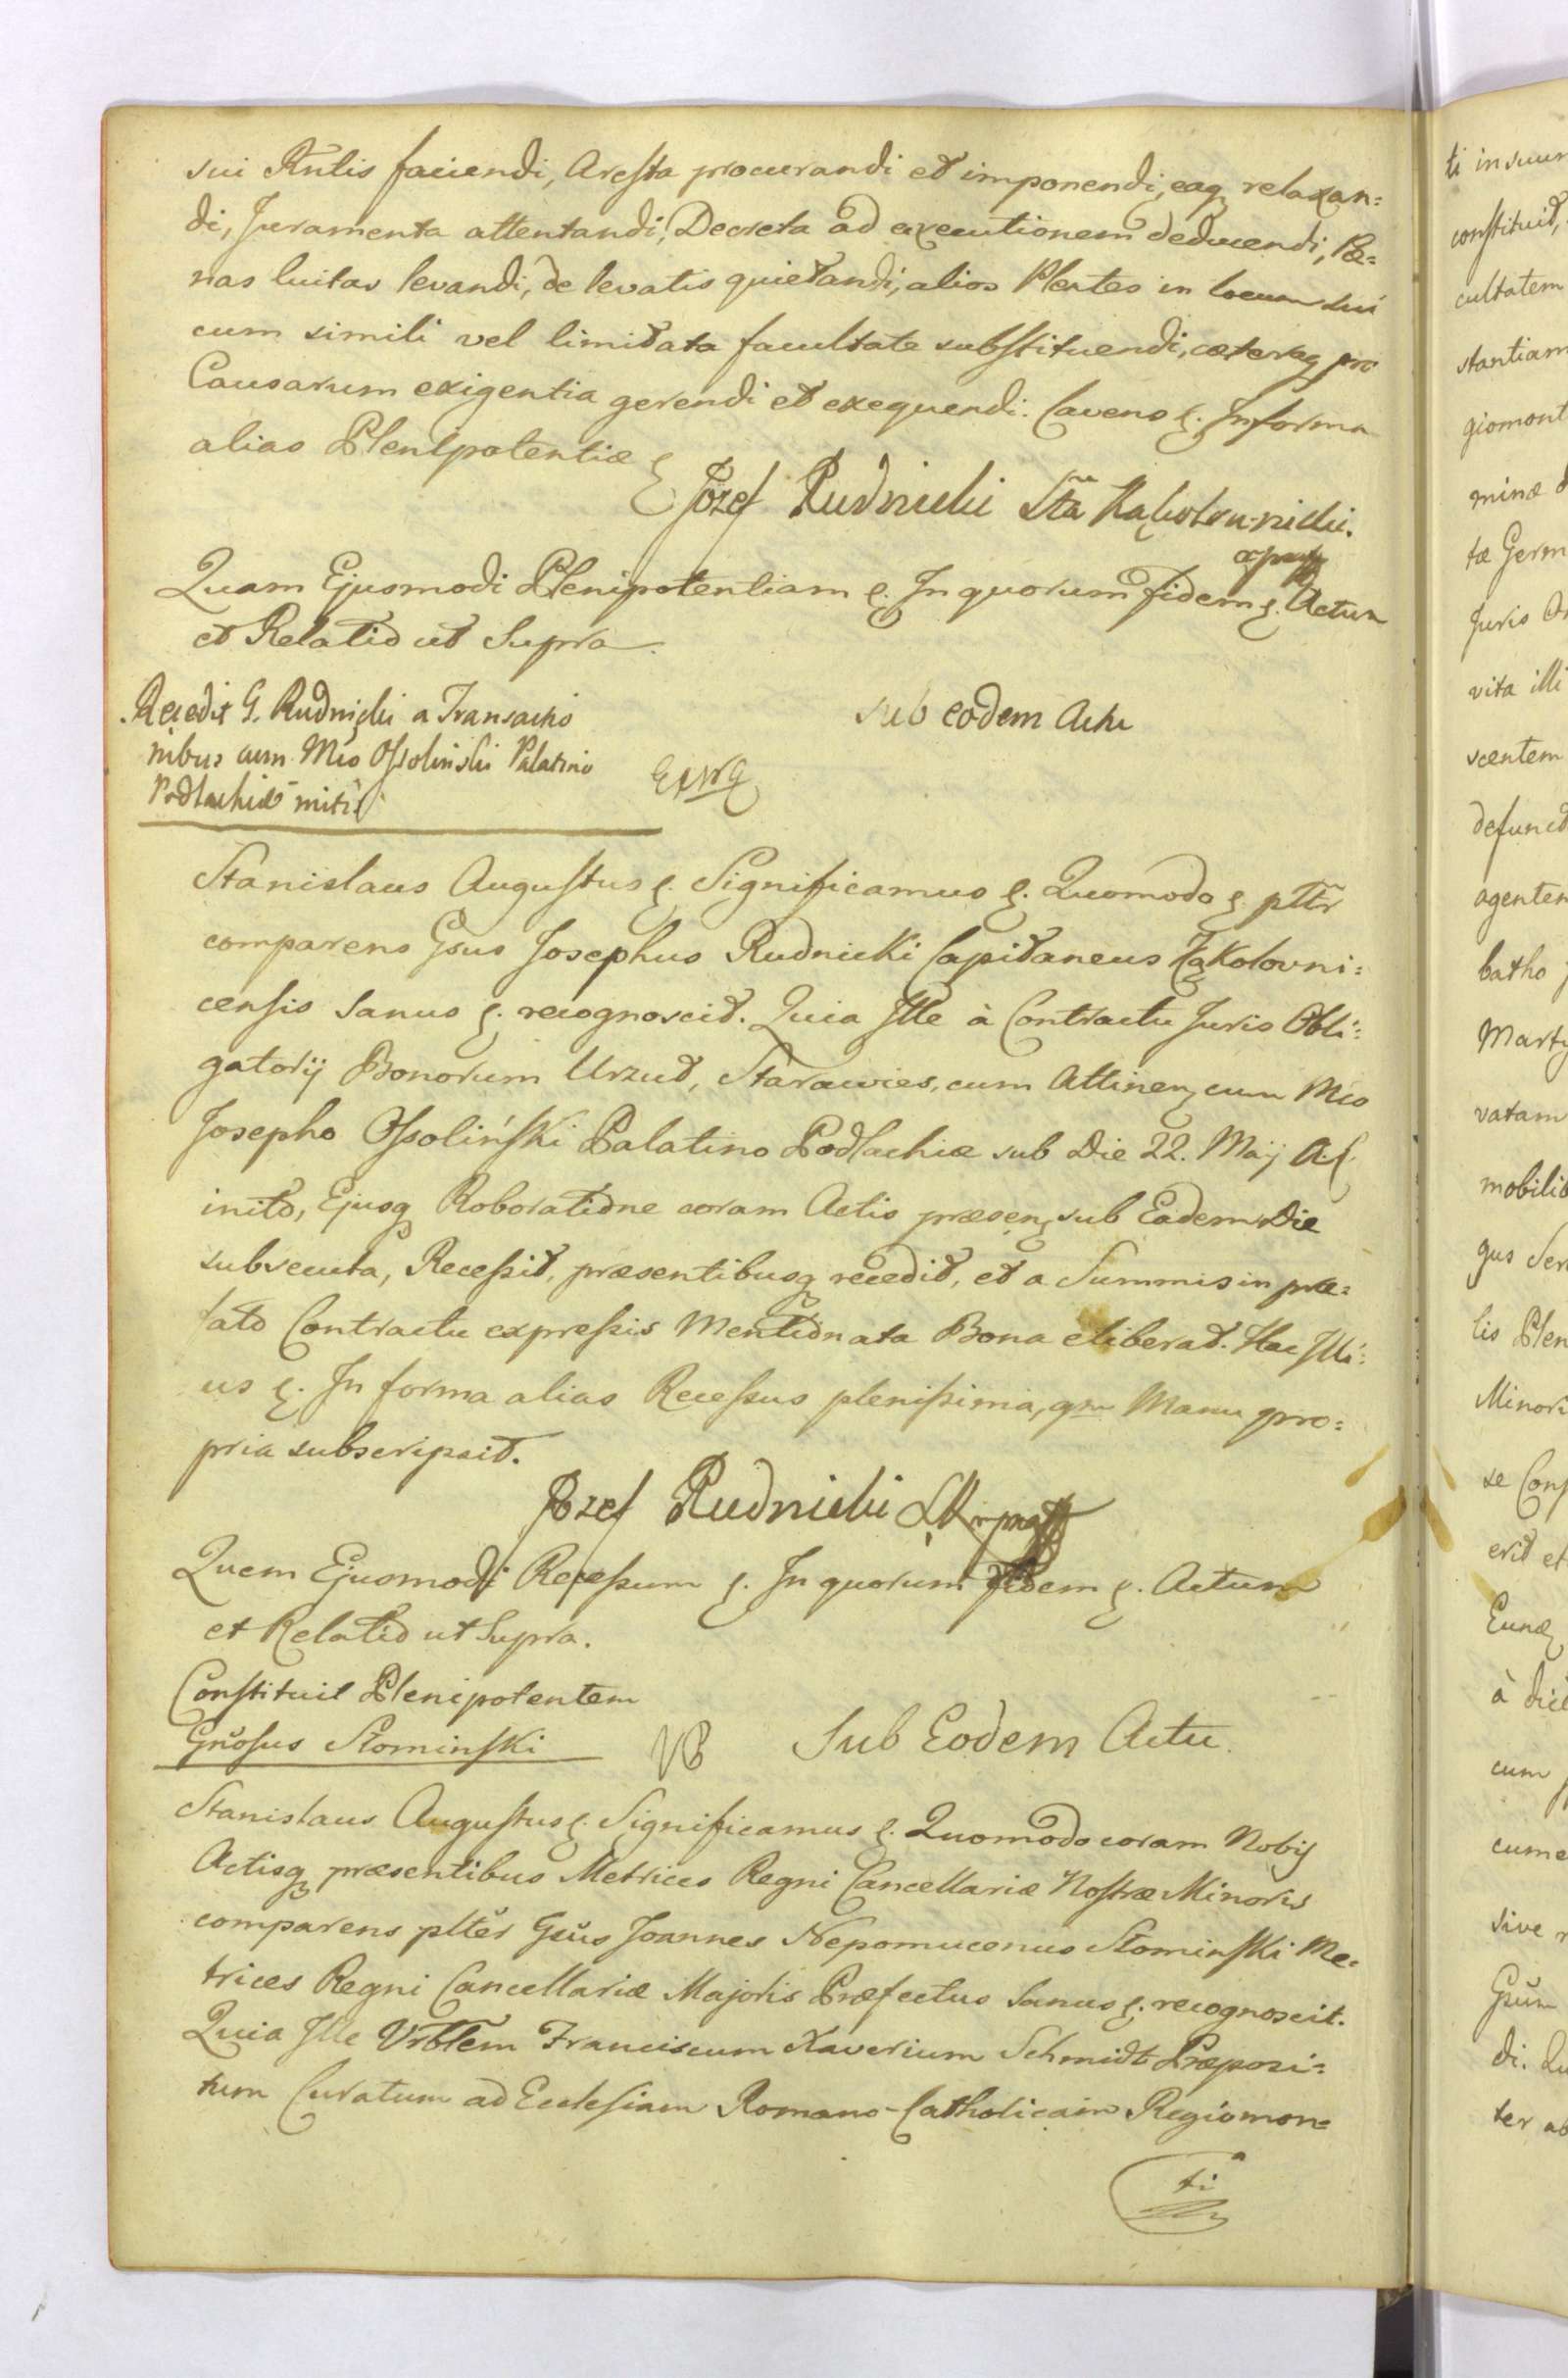 sui Rntis faciendi, Aresta procurandi et imponendi, eaq relaxan=
di, Juramenta attentandi, Decreta ad executionem deducendi, Pæ=
nas luitas levandi, de levatis quietandi, alios Plentes in locum sui
cum simili vel limitata facultate substituendi, cæteraq pro
Causarum exigentia gerendi et exequendi. Cavens &. In forma
alias Plenipotentiæ &
Józef Rudnicki Stta
Quam Ejusmodi Plenipotentiam &. In quorum fidem &. Actum
et Relatio ut Supra.
Recedit G. Rudnicki a Transactio
nibus cum Mco Ossolinski Palatino
Podlachiæ initis
sub eodem Actu
Stanislaus Augustus &. Significamus &. Quomodo & plttr
comparens Gsus Josephus Rudnicki Capitaneus Kąkolovni=
censis Sanus &. recognoscit. Quia Ille à Contractu Juris Obli=
gatorij Bonorum Urzut, Starawies, cum Attinen cum Mco
Josepho Ossoliński Palatino Podlachiæ sub Die 22. Maij A.C.
inito, Ejusq Roboratione coram Actis præsen sub Eadem Die
subsecuta, Recessit, præsentibusq recedit, et a Summis in præ=
fato Contractu expressis Mentionata Bona eliberat. Hac Illi=
us &. In forma alias Recessus plenissima, qm Manu pro=
pria subscripsit.
Józef Rudnicki
Quem Ejusmodi Recessum &. In quorum fidem &. Actum
et Relatio ut Supra.
Constituit Plenipotentem
Gnosus Słominski
VB Sub Eodem Actu.
Stanislaus Augustus &. Significamus &. Quomodo coram Nobis
Actisq præsentibus Metrices Regni Cancellariæ Nostræ Minoris
comparens pltěr Gsus Joannes Nepomucenus Słominski Me=
trices Regni Cancellariæ Majoris Præfectus Sanus &. recognoscit.
Quia Ille Vrblem Franciscum Xaverium Schmidt Præposi=
tum Curatum ad Ecclesiam Romano-Catholicam Regiomon=
ti
ti in suum
constituit,
cultatem
stantiam
giomont
minæ
tæ Germ
Juris
vita illi
scentem
defunct
agentem
batho
Marty
vatam
mobilis
gus Ser
lis Plen
Minori
se Cons
erit et
à
cum
cume
sive
Gsum
di.
ter ab